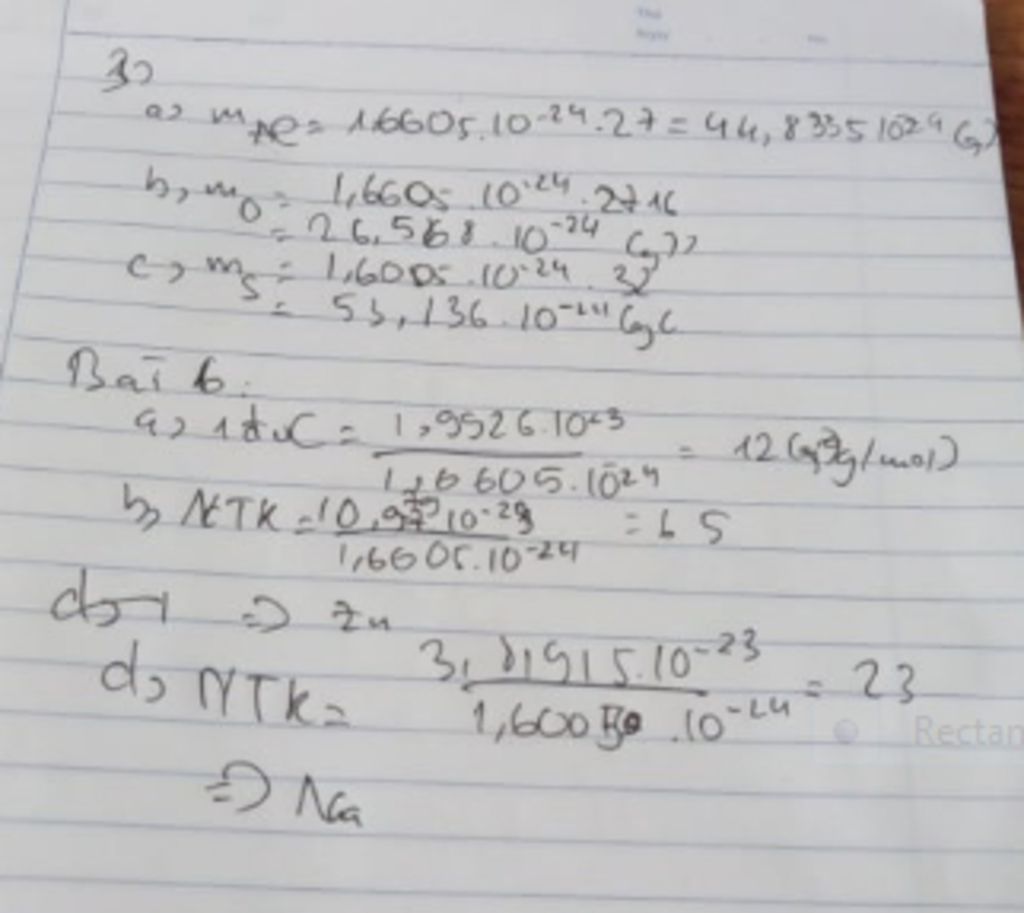 3)
a) mAl = 1,6605.10-24.27 = 44,8335 1024 (g)
b, mO = 1,6605 10-24.27 16
= 26,568.10-24 (g))
c, mS = 1,6005.10-24. 32
= 53,136.10-24 (g(
Bài 6:
a) 1đvC = 1,9926.10-23 / 1,6605.10-24 = 12 (g/mol)
b) NTK = 10,9 10-23 / 1,6605.10-24 = 65
=> Zn
d, NTK = 3,81915.10-23 / 1,600 .10-24 = 23
=> Na
Rectan